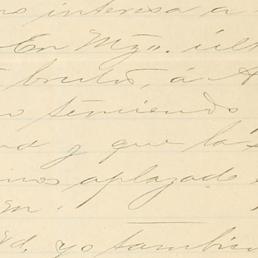 interesa a
En Mzo. últ
brutos, á A
temiendo
y que la
mos aplazado
en.
Ud. yo tambien